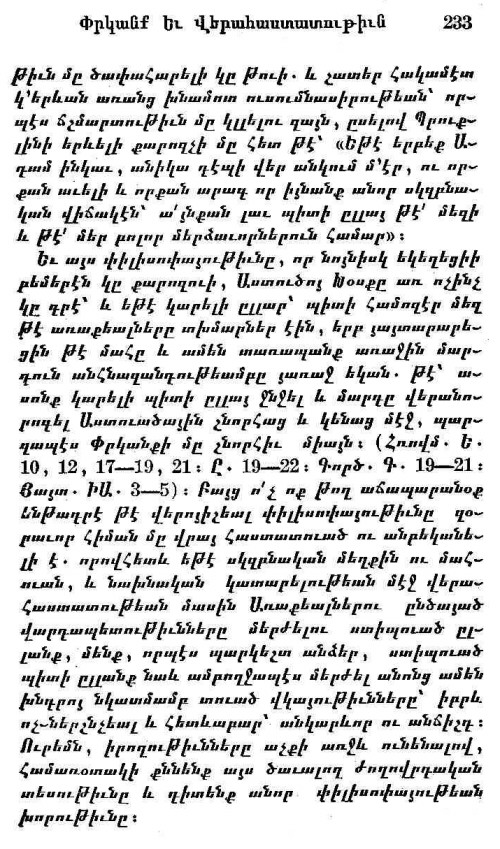 Փրկանք եւ Վերահաստատութիւն 233
թիւն մը ծափահարելի կը թուի. և շատեր Հակամէտ
կ՚երևան առանց խնամոտ ուսումնասիրութեան՝ որ-
պէս ճշմարտութիւն մը կլլելու զայն, ըսելով Պրուք-
լինի երևելի քարոզչի մը հետ թէ՝ «Եթէ երբեք Ա-
դամ ինկաւ, անիկա դէպի վեր անկում մ՚էր, ու որ-
քան աւելի և որքան արագ որ իյնանք անոր սկզբնա-
կան վիճակէն՝ ա՛յնքան լաւ պիտի ըլլայ թէ՛ մեզի
և թէ՛ մեր բոլոր մերձաւորներուն համար»։
Եւ այս փիլիսոփայութիւնը, որ նոյնիսկ եկեղեցիի
բեմերէն կը քարոզուի, Աստուծոյ Խօսքը առ ոչինչ
կը գրէ՝ և եթէ կարելի ըլլար՝ պիտի համոզէր մեզ
թէ առաքեալները տխմարներ էին, երբ յայտարարե-
ցին թէ մահը և ամեն տառապանք առաջին մար-
դուն անհնազանդութեամբը յառաջ եկան. թէ՝ ա-
սոնք կարելի պիտի ըլլայ ջնջել և մարդը վերանո-
րոգել Աստուածային շնորհաց և կենաց մէջ, պար-
զապէս Փրկանքի մը շնորհիւ միայն։ (Հռովմ. Ե.
10, 12, 17—19, 21։ Ը. 19—22։ Գործ. Գ. 19—21։
Յայտ. ԻԱ. 3—5)։ Բայց ո՛չ ոք թող աճապարանօք
Ընթադրէ թէ վերոյիշեալ փիլիսոփայութիւնը զօ-
րաւոր հիման մը վրայ հաստատուած ու անբեկանե-
լի է. որովհետև եթէ սկզբնական մեղքին ու մահ-
ուան, և նախնական կատարելութեան մէջ վերա-
հաստատութեան մասին Առաքեալներու ընծայած
վարդապետութիւնները մերժելու ստիպուած ըլ-
լանք, մենք, որպէս պարկեշտ անձեր, ստիպուած
պիտի ըլլանք նաև ամբողջապէս մերժել անոնց ամեն
խնդրոյ նկատմամբ տուած վկայութիւնները՝ իբրև
ոչ-ներշնչեալ և հետևաբար՝ անկարևոր ու անճիշդ։
Ուրեմն, իրողութիւնները աչքի առջև ունենալով,
համառօտակի քննենք այս ծաւալող ժողովրդական
տեսութիւնը և գիտենք անոր փիլիսոփայութեան
խորութիւնը։